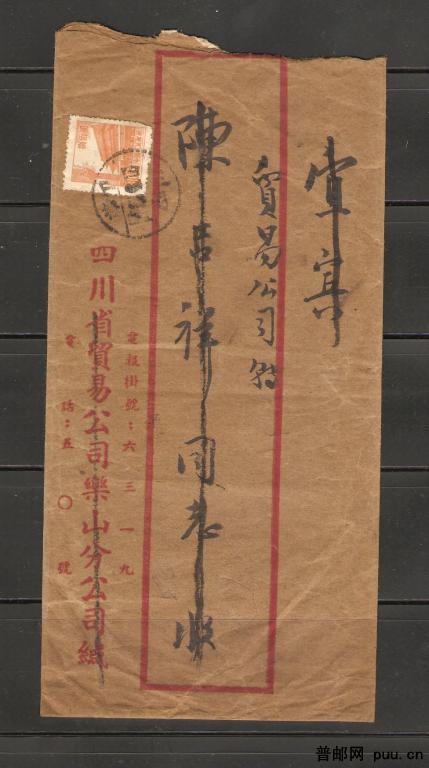 宜宾
貿易公司转
陳吉祥同志收
電報掛號：六三一九
四川省貿易公司樂山分公司緘
電話：五〇號
普邮网 puu.cn